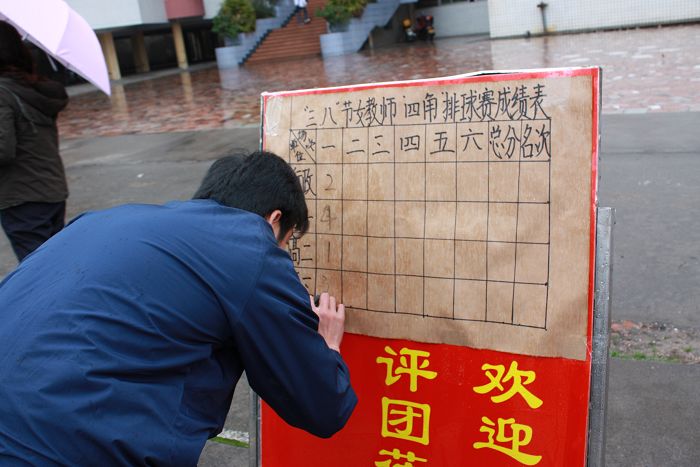 "三八"节女教师四角排球赛成绩表
场次 单位 一 二 三 四 五 六 总分 名次
政 2
一 4
高二 1
欢迎
评团